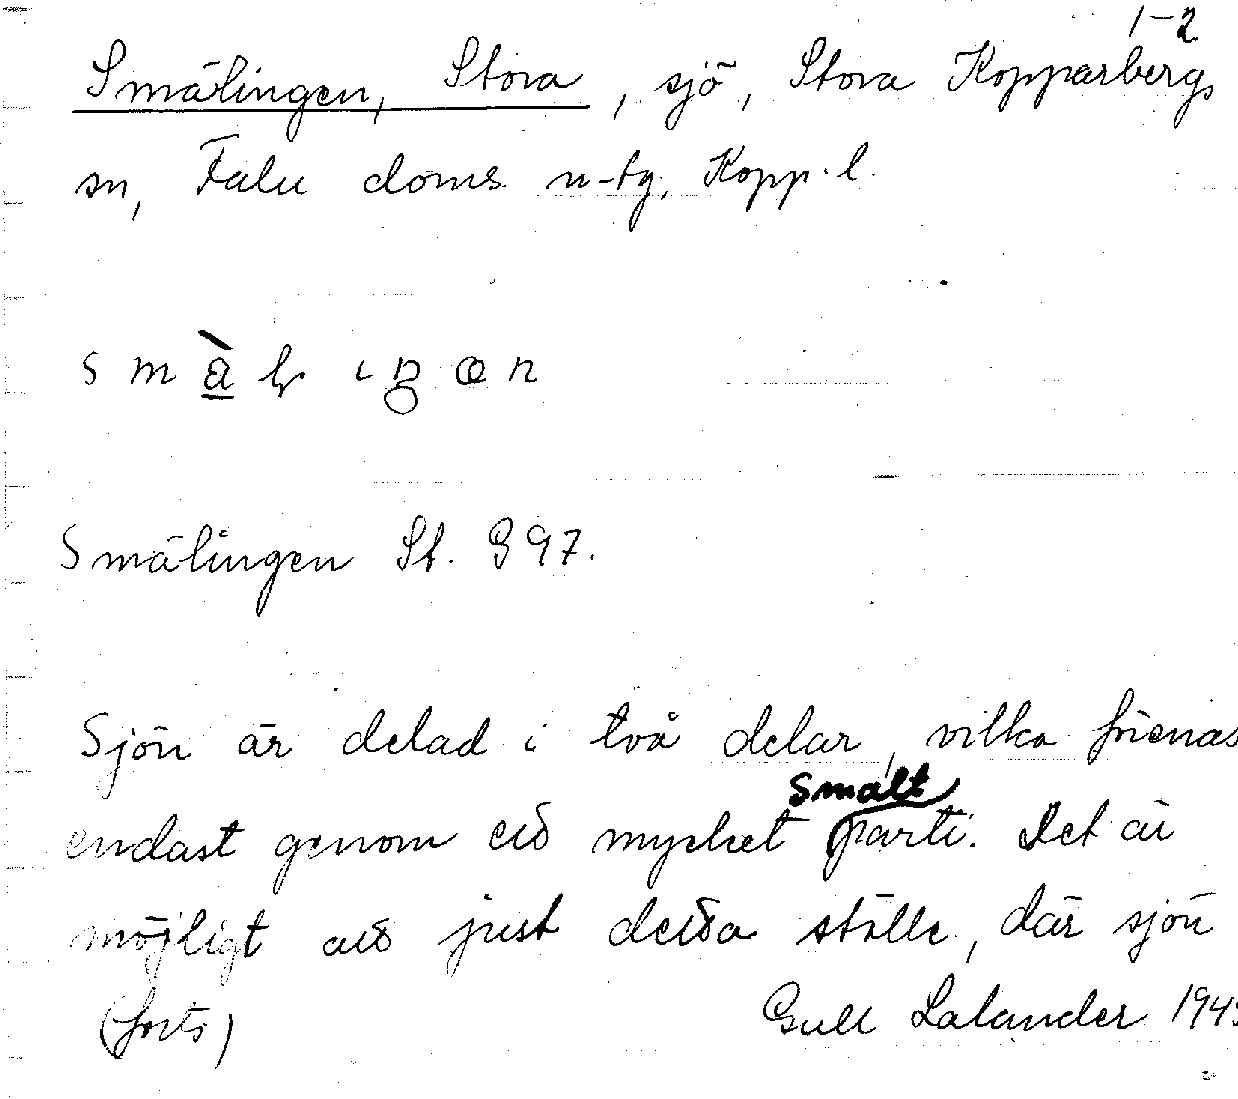 1-2
Smälingen, Stora, sjö, Stora Kopparbergs
sn, Falu doms. n-tg, Kopp. l.
Smälingen St. G 97.
Sjön är delad i två delar, vilka förenas
endast genom ett mycket smalt parti. Det är
möjligt att just detta ställe, där sjön
(forts) Gull Lalander 194